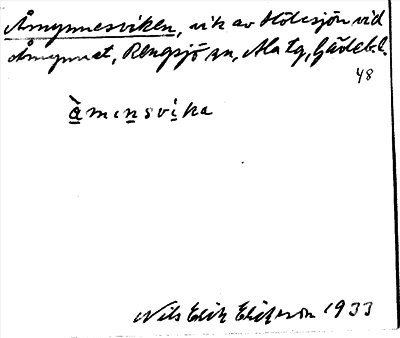 Åmynnesviken, vik av Hölesjön vid
Åmynnet, Rengsjö sn, Ala tg, Gävleb. l.
48
å̀mınsvika
Nils Erik Eriksson 1933